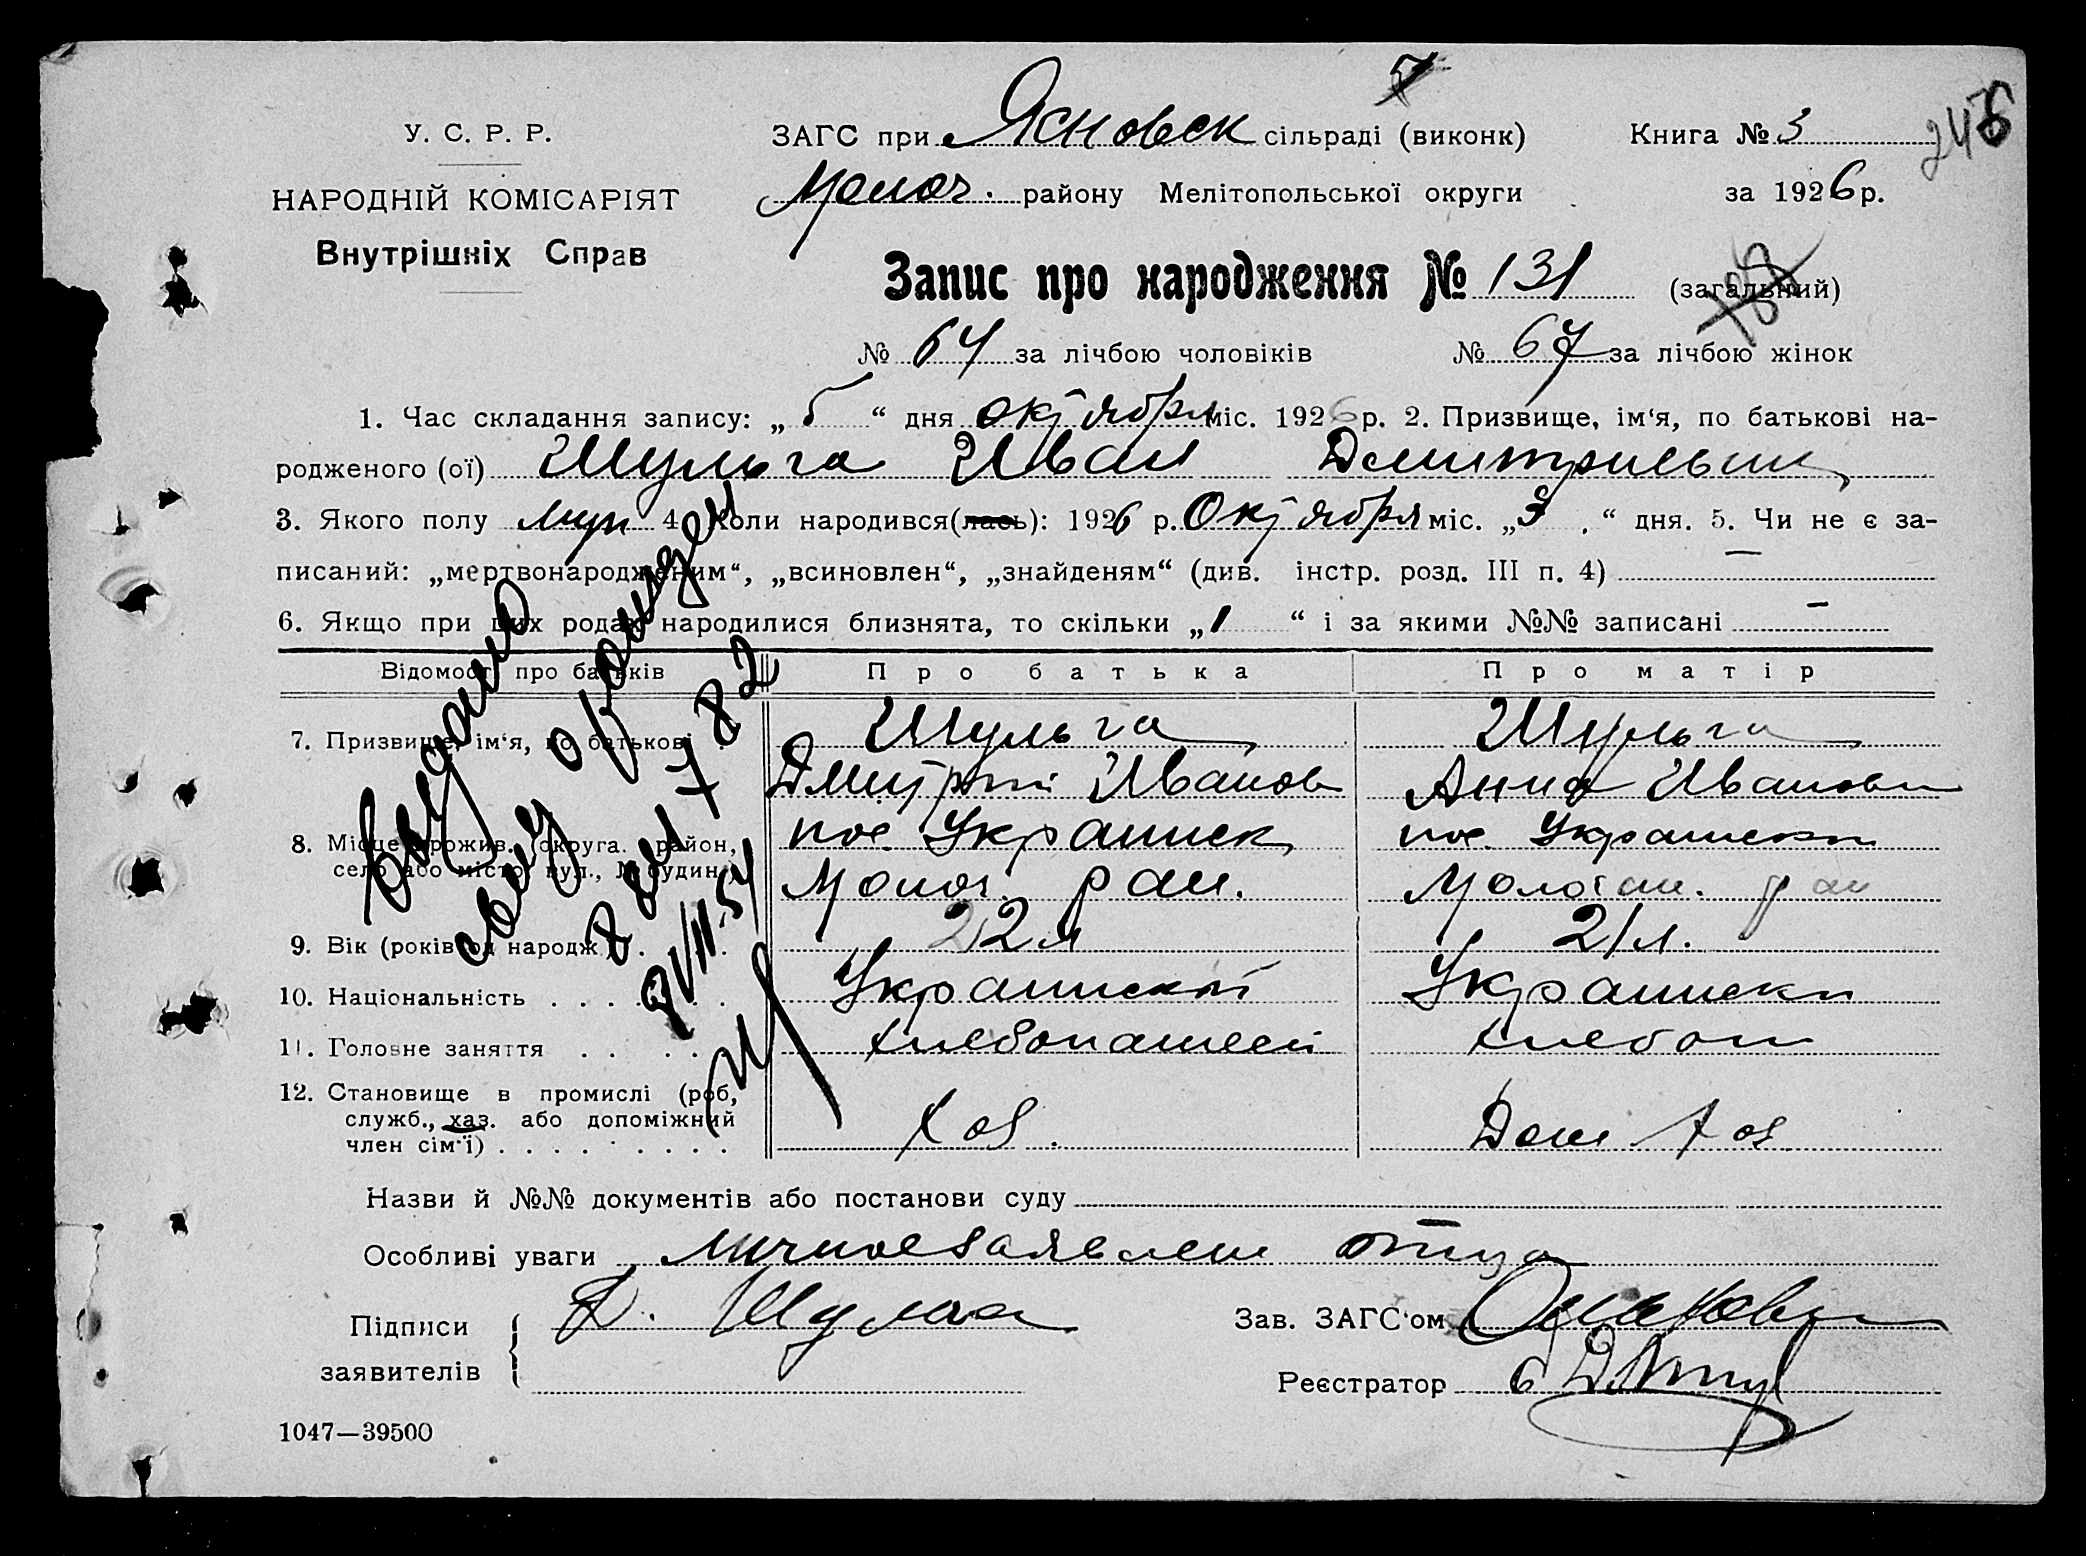 У. С. Р. Р.
НАРОДНІЙ КОМІСАРІЯТ
Внутрішніх Справ
ЗАГС при Ясновск сільраді (виконк)
Книга № 3
Молоч. району Мелітопольської округи
за 1926 р.
Запис про народження № 131 (загальний)
№ 64 за лічбою чоловіків № 67 за лічбою жінок
1. Час складання запису: „ 5 “ дня октября міс. 1926 р. 2. Призвище, ім‘я, по батькові на-
родженого (ої) Шульга Иван Дмитриевич
3. Якого полу муж 4. Коли народився(лась): 1926 р. Октября міс. „ 3 “ дня. 5. Чи не є за-
писаний: „мертвонародженим“, „всиновлен“, „знайденям“ (див. інстр. розд. III п. 4) —
6. Якщо при цих родах народилися близнята, то скільки „ 1 “ і за якими №№ записані —
Відомості про батьків Про батька Про матір
7. Призвище, ім‘я, по батькові . Шульга Шульга
Дмитрий Иванов Анна Ивановн
8. Місце прожив. (округа, район, пос. Украинск пос. Украинск
село або місто, вул., № будин.) Молоч. рай. Молочан. рай
9. Вік (років од народж.) . . 22 л 21 л.
10. Національність . . . . . Украинский Украински
11. Головне заняття . . . . хлебопашест хлебоп
12. Становище в промислі (роб,
служб., хаз. або допоміжний
член сім‘ї) . . . . . . . . Хоз. Дом Хоз
Выдано
свид о рожден
7 82
VII-54
Назви й №№ документів або постанови суду
Особливі уваги личное заявлен отца
Підписи
заявителів
Д. Шулга
Зав. ЗАГС‘ом
Реєстратор
1047—39500